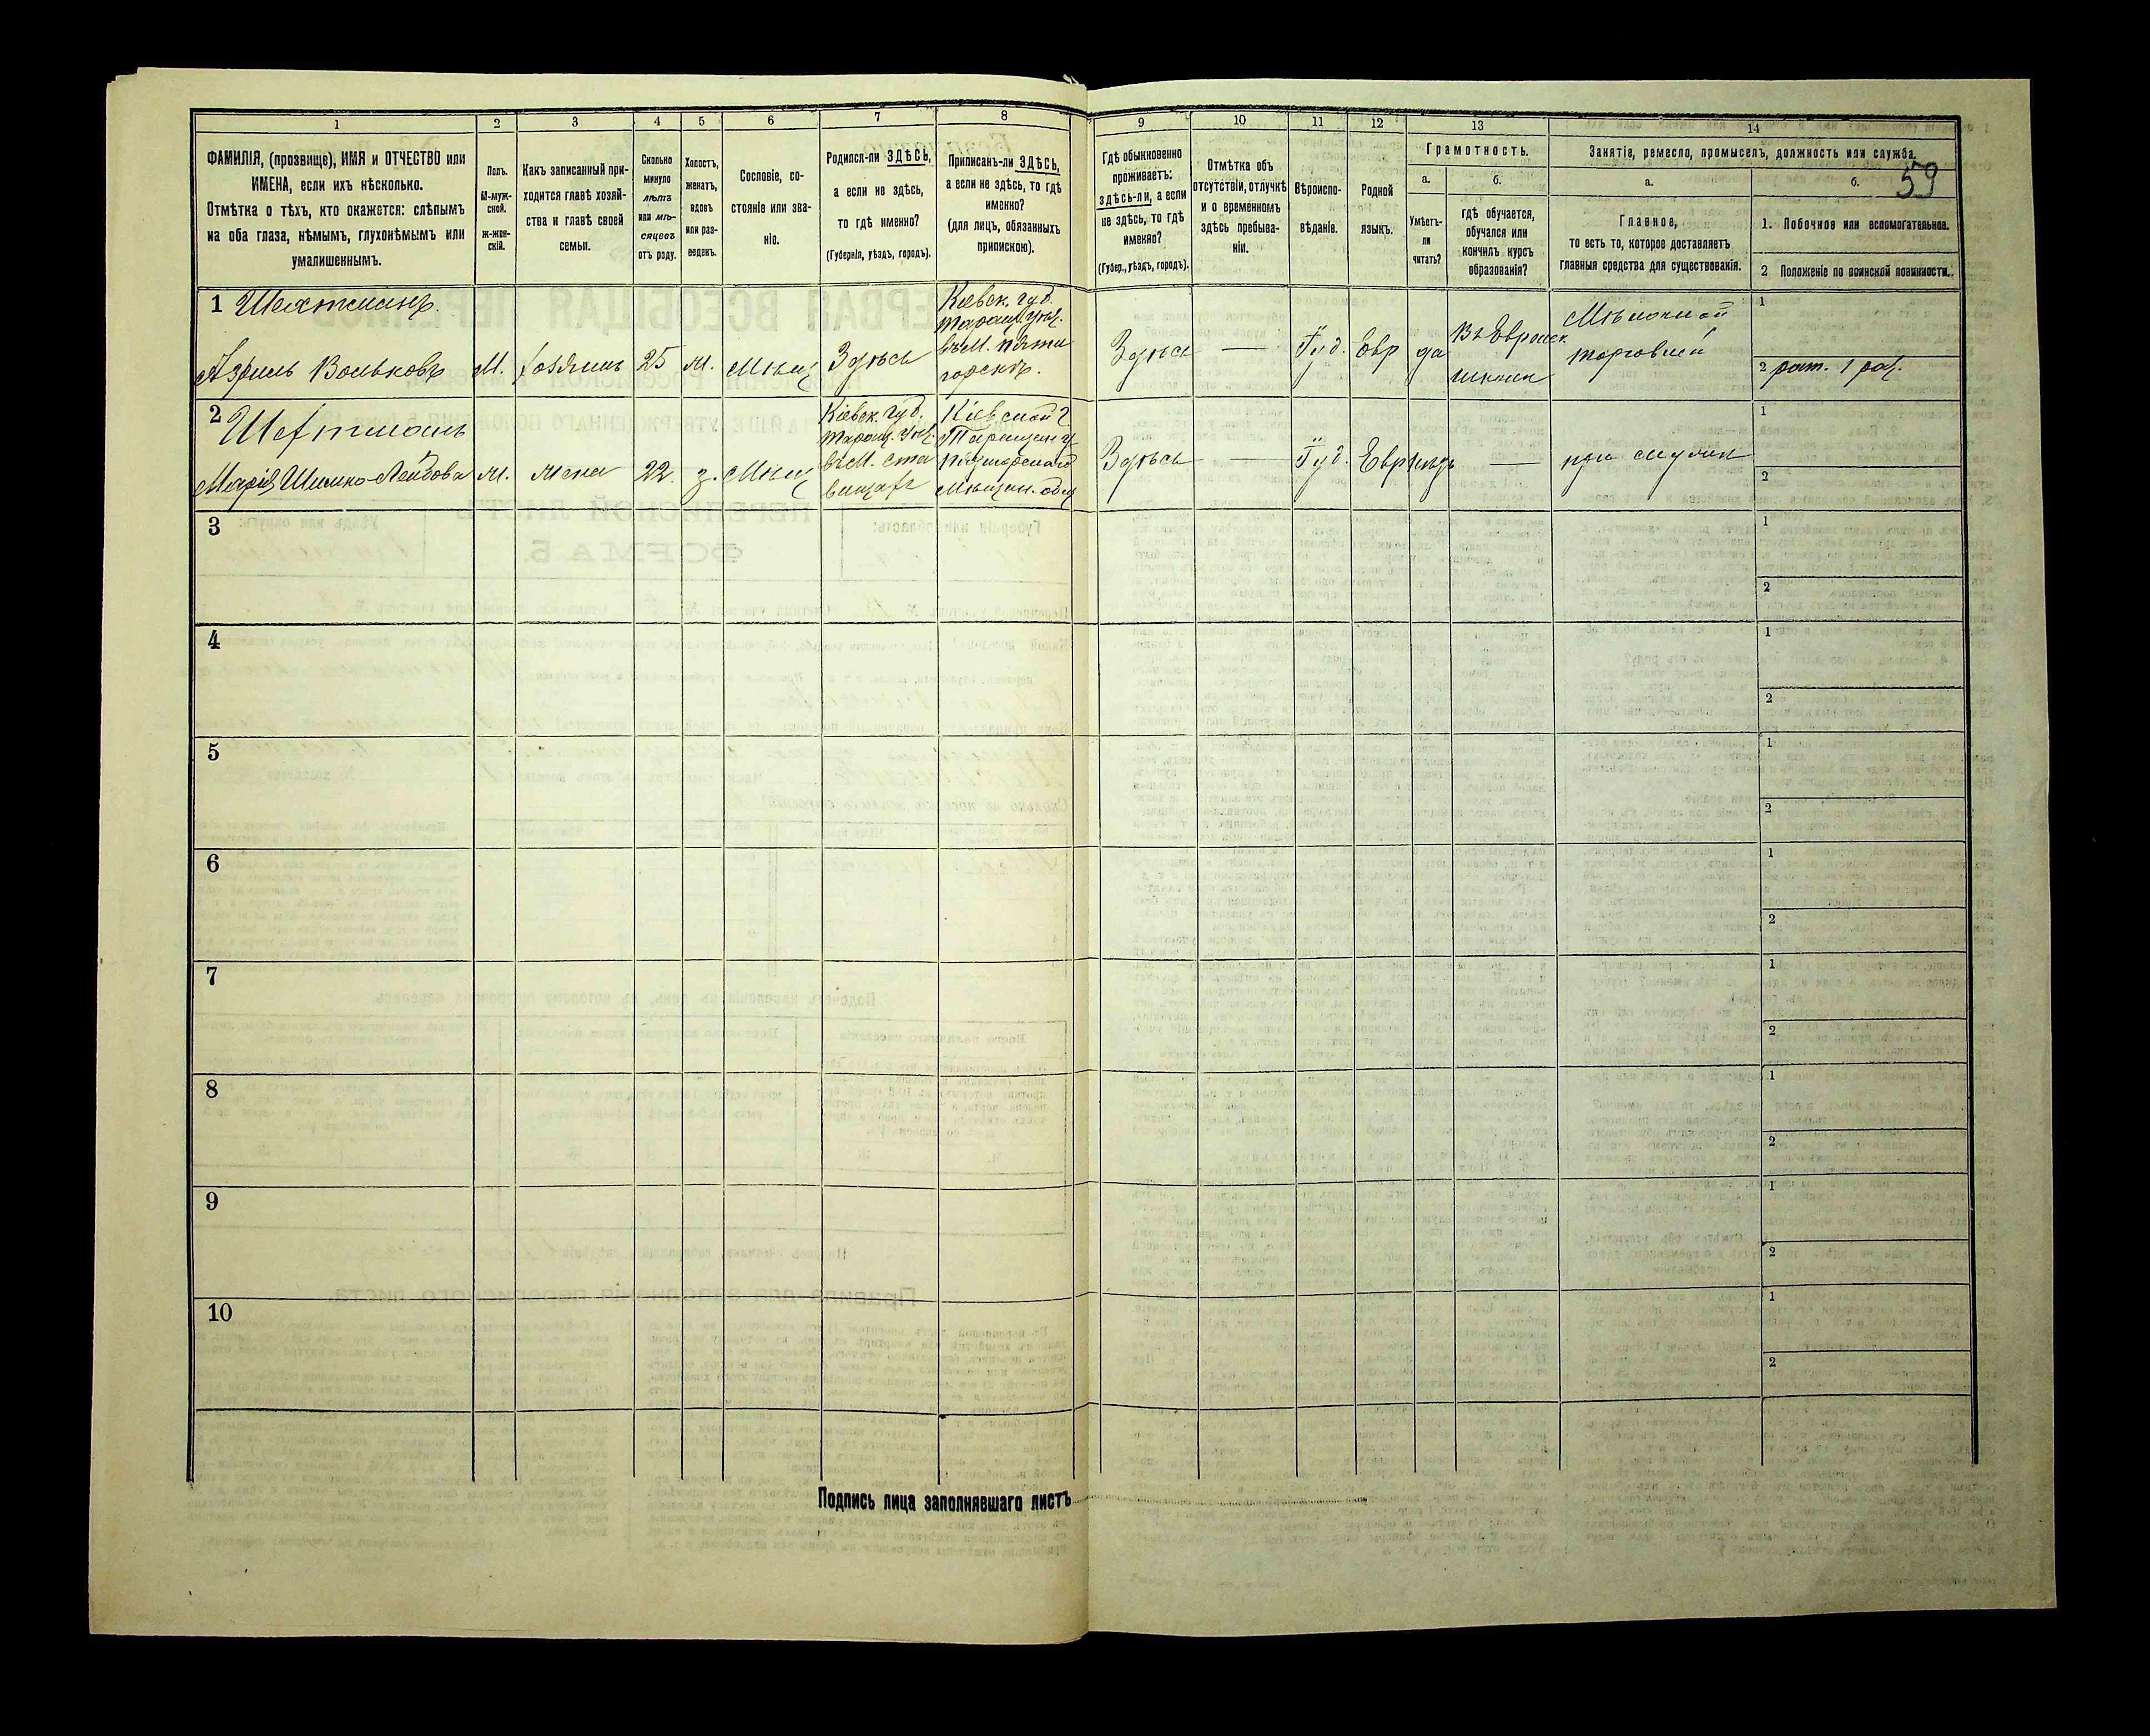 59
1
2
3
4
5
6
7
8
9
10
11
12
13
14
ФАМИЛІЯ, (прозвище), ИМЯ и ОТЧЕСТВО или
ИМЕНА, если ихъ нѣсколько.
Отмѣтка о тѣхъ, кто окажется: слѣпымъ
на оба глаза, нѣмымъ, глухонѣмымъ или
умалишеннымъ.
Полъ.
М-муж-
ской.
Ж-жен-
скій.
Какъ записанный при-
ходится главѣ хозяй-
ства и главѣ своей
семьи.
Сколько
минуло
лѣтъ
или мѣ-
сяцевъ
отъ роду.
Холостъ,
женатъ,
вдовъ
или раз-
веденъ.
Сословіе, со-
стояніе или зва-
ніе.
Родился-ли ЗДѢСЬ,
а если не здѣсь,
то гдѣ именно?
(Губернія, уѣздъ, городъ).
Приписанъ-ли ЗДѢСЬ,
а если не здѣсь, то гдѣ
именно?
(для лицъ, обязанныхъ
припискою).
Гдѣ обыкновенно
проживаетъ:
здѣсь-ли, а если
не здѣсь, то гдѣ
именно?
(Губер., уѣздъ, городъ).
Отмѣтка объ
отсутствіи, отлучкѣ
и о временномъ
здѣсь пребыва-
ніи.
Вѣроиспо-
вѣданіе.
Родной
языкъ.
Грамотность.
а.
Умѣетъ-
ли
читать?
б.
гдѣ обучается,
обучался или
кончилъ курсъ
образованія?
Занятіе, ремесло, промыселъ, должность или служба.
а.
Главное,
то есть то, которое доставляетъ
главныя средства для существованія.
б.
1. Побочное или вспомогательное.
2 Положеніе по воинской повинности.
1 Шахтманъ.
Азриль Вольковъ
М.
хозяинъ
25
ж.
Мѣщ
Здѣсь
Кіевск. губ.
Таращ. уѣз.
въ М. Пяти
горскѣ.
Здѣсь
—
Іуд.
Евр
да
Въ Еврейск.
школѣ
Мѣлочной
торговлей
1
2 рат. 1 раз.
2
Шахтманъ
Марія Шимко-Лейбова
ж.
жена
22
з.
Мѣщ
Кіевск. губ.
Таращ. уѣз.
въ М. Ста
вищахъ
Кіевской г.
Таращан у
Пятигорскаго
Мѣщан. общ
Здѣсь
—
Іуд.
Евр
нѣтъ
—
при мужѣ
1
2
3
1
2
4
1
2
5
1
2
6
1
2
7
1
2
8
1
2
9
1
2
10
1
2
Подпись лица заполнявшаго листъ